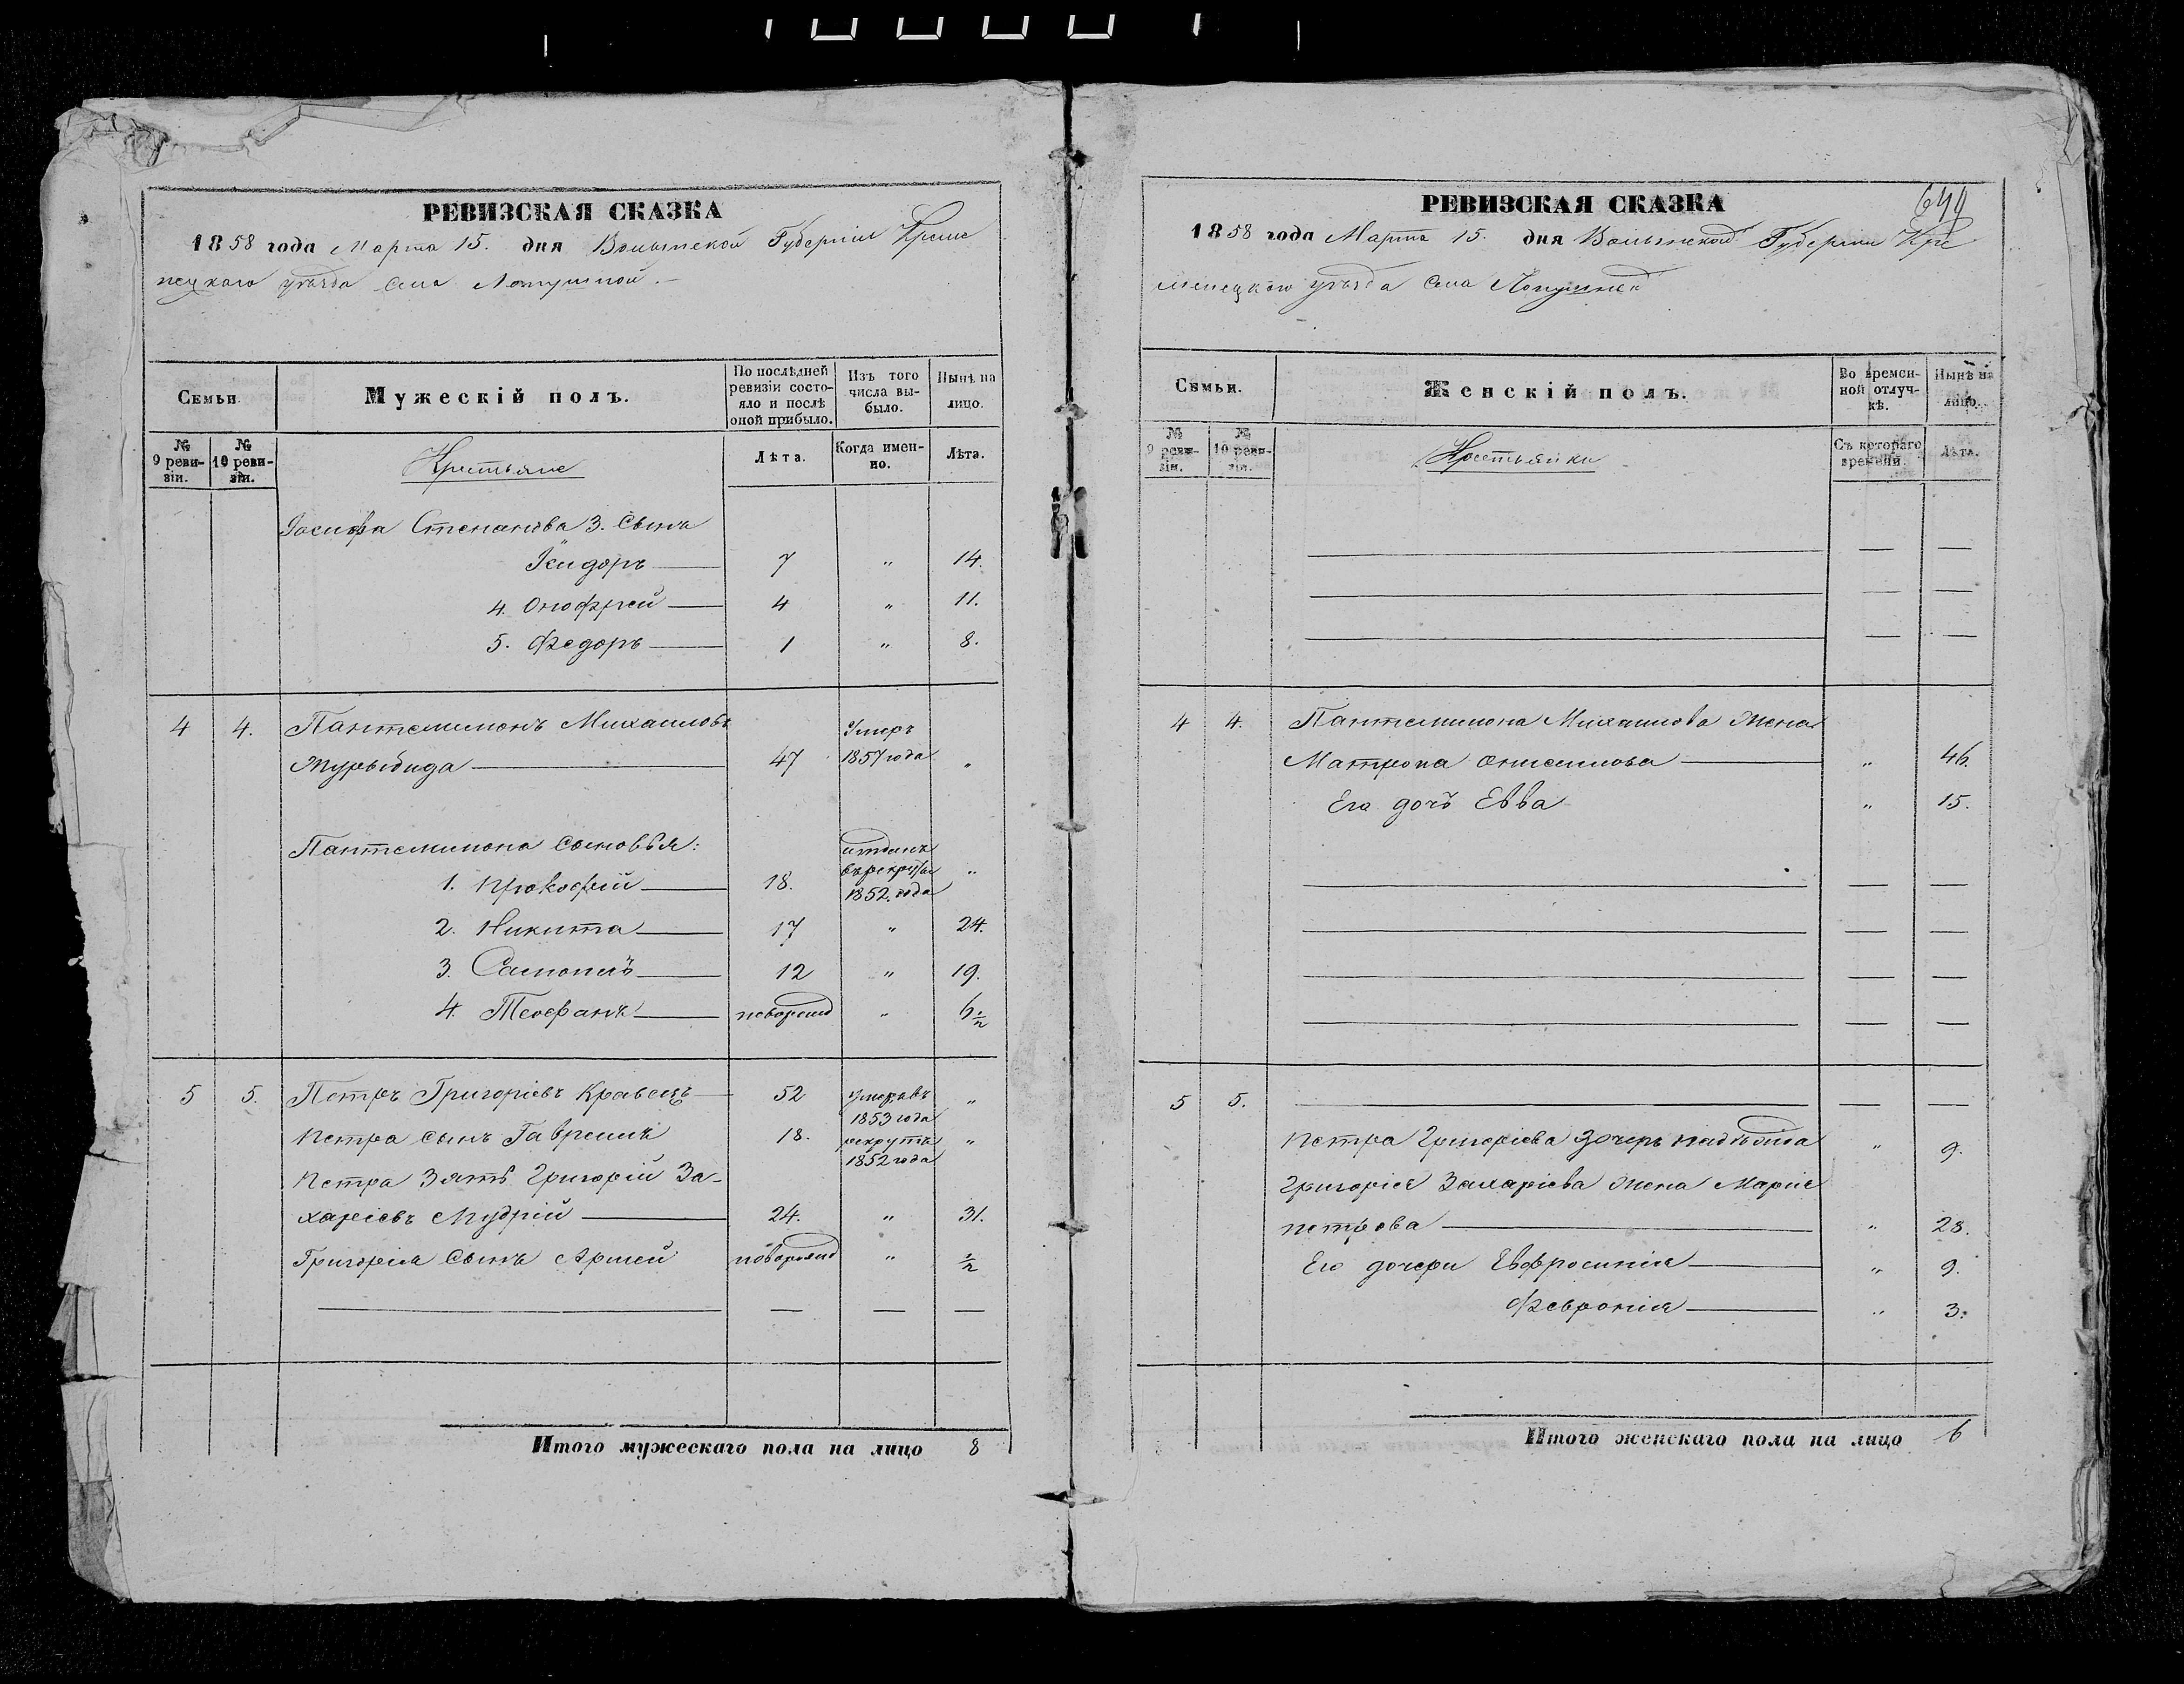 РЕВИЗСКАЯ СКАЗКА
1858 года Марта 15. дня Волынской Губерніи Креме
нецкаго уѣзда села Лопушной.
Семьи.
Мужескій полъ.
По послѣдней ревизіи состояло и послѣ оной прибыло.
Изъ того числа выбыло.
Нынѣ на лицо.
№ 9 ревизіи.
№ 10 ревизіи.
Крестьяне
Лѣта.
Когда именно.
Лѣта.
Іосифа Степанова 3. Сынъ
Ісидоръ 7 " 14.
4. Онофрей 4 " 11.
5. Федоръ 1 " 8.
4 4. Пантелимонъ Михаиловъ Умеръ
47 1857 года "
Пантелимона сыновья: отданъ
1. Прокофій 18. въ рекруты "
1852. года
2. Никита 17 " 24.
3. Самоилъ 12 " 19.
4. Теофанъ новорожд " 6½
5 5. Петръ Григоріевъ Кравецъ 52 умеръ въ "
1853 года
Петра сынъ Гавреилъ 18. рекрутъ "
1852 года
Петра Зять Григорій За-
харіевъ Мудрій 24. " 31.
Григорія Сынъ новорожд " ½
Итого мужескаго пола на лицо 8
РЕВИЗСКАЯ СКАЗКА
1858 года Марта 15. дня Волынской Губерніи Кре
менецкаго уѣзда села Лопушной
Семьи.
Женскій полъ.
Во временной отлучкѣ.
Нынѣ на лицо.
№ 9 ревизіи.
№ 10 ревизіи.
Крестьянки
Съ котораго времени.
Лѣта.
4 4. Пантелимона Михаилова жена
Матрона Онисимова " 46.
Его дочъ Евва " 15.
5 5.
Петра Григоріева дочерь " 9.
Григорія Захаріева жена Марія
Петрова " 28.
Его дочери Евфросинія " 9.
Февронія " 3.
Итого женскаго пола на лицо 6